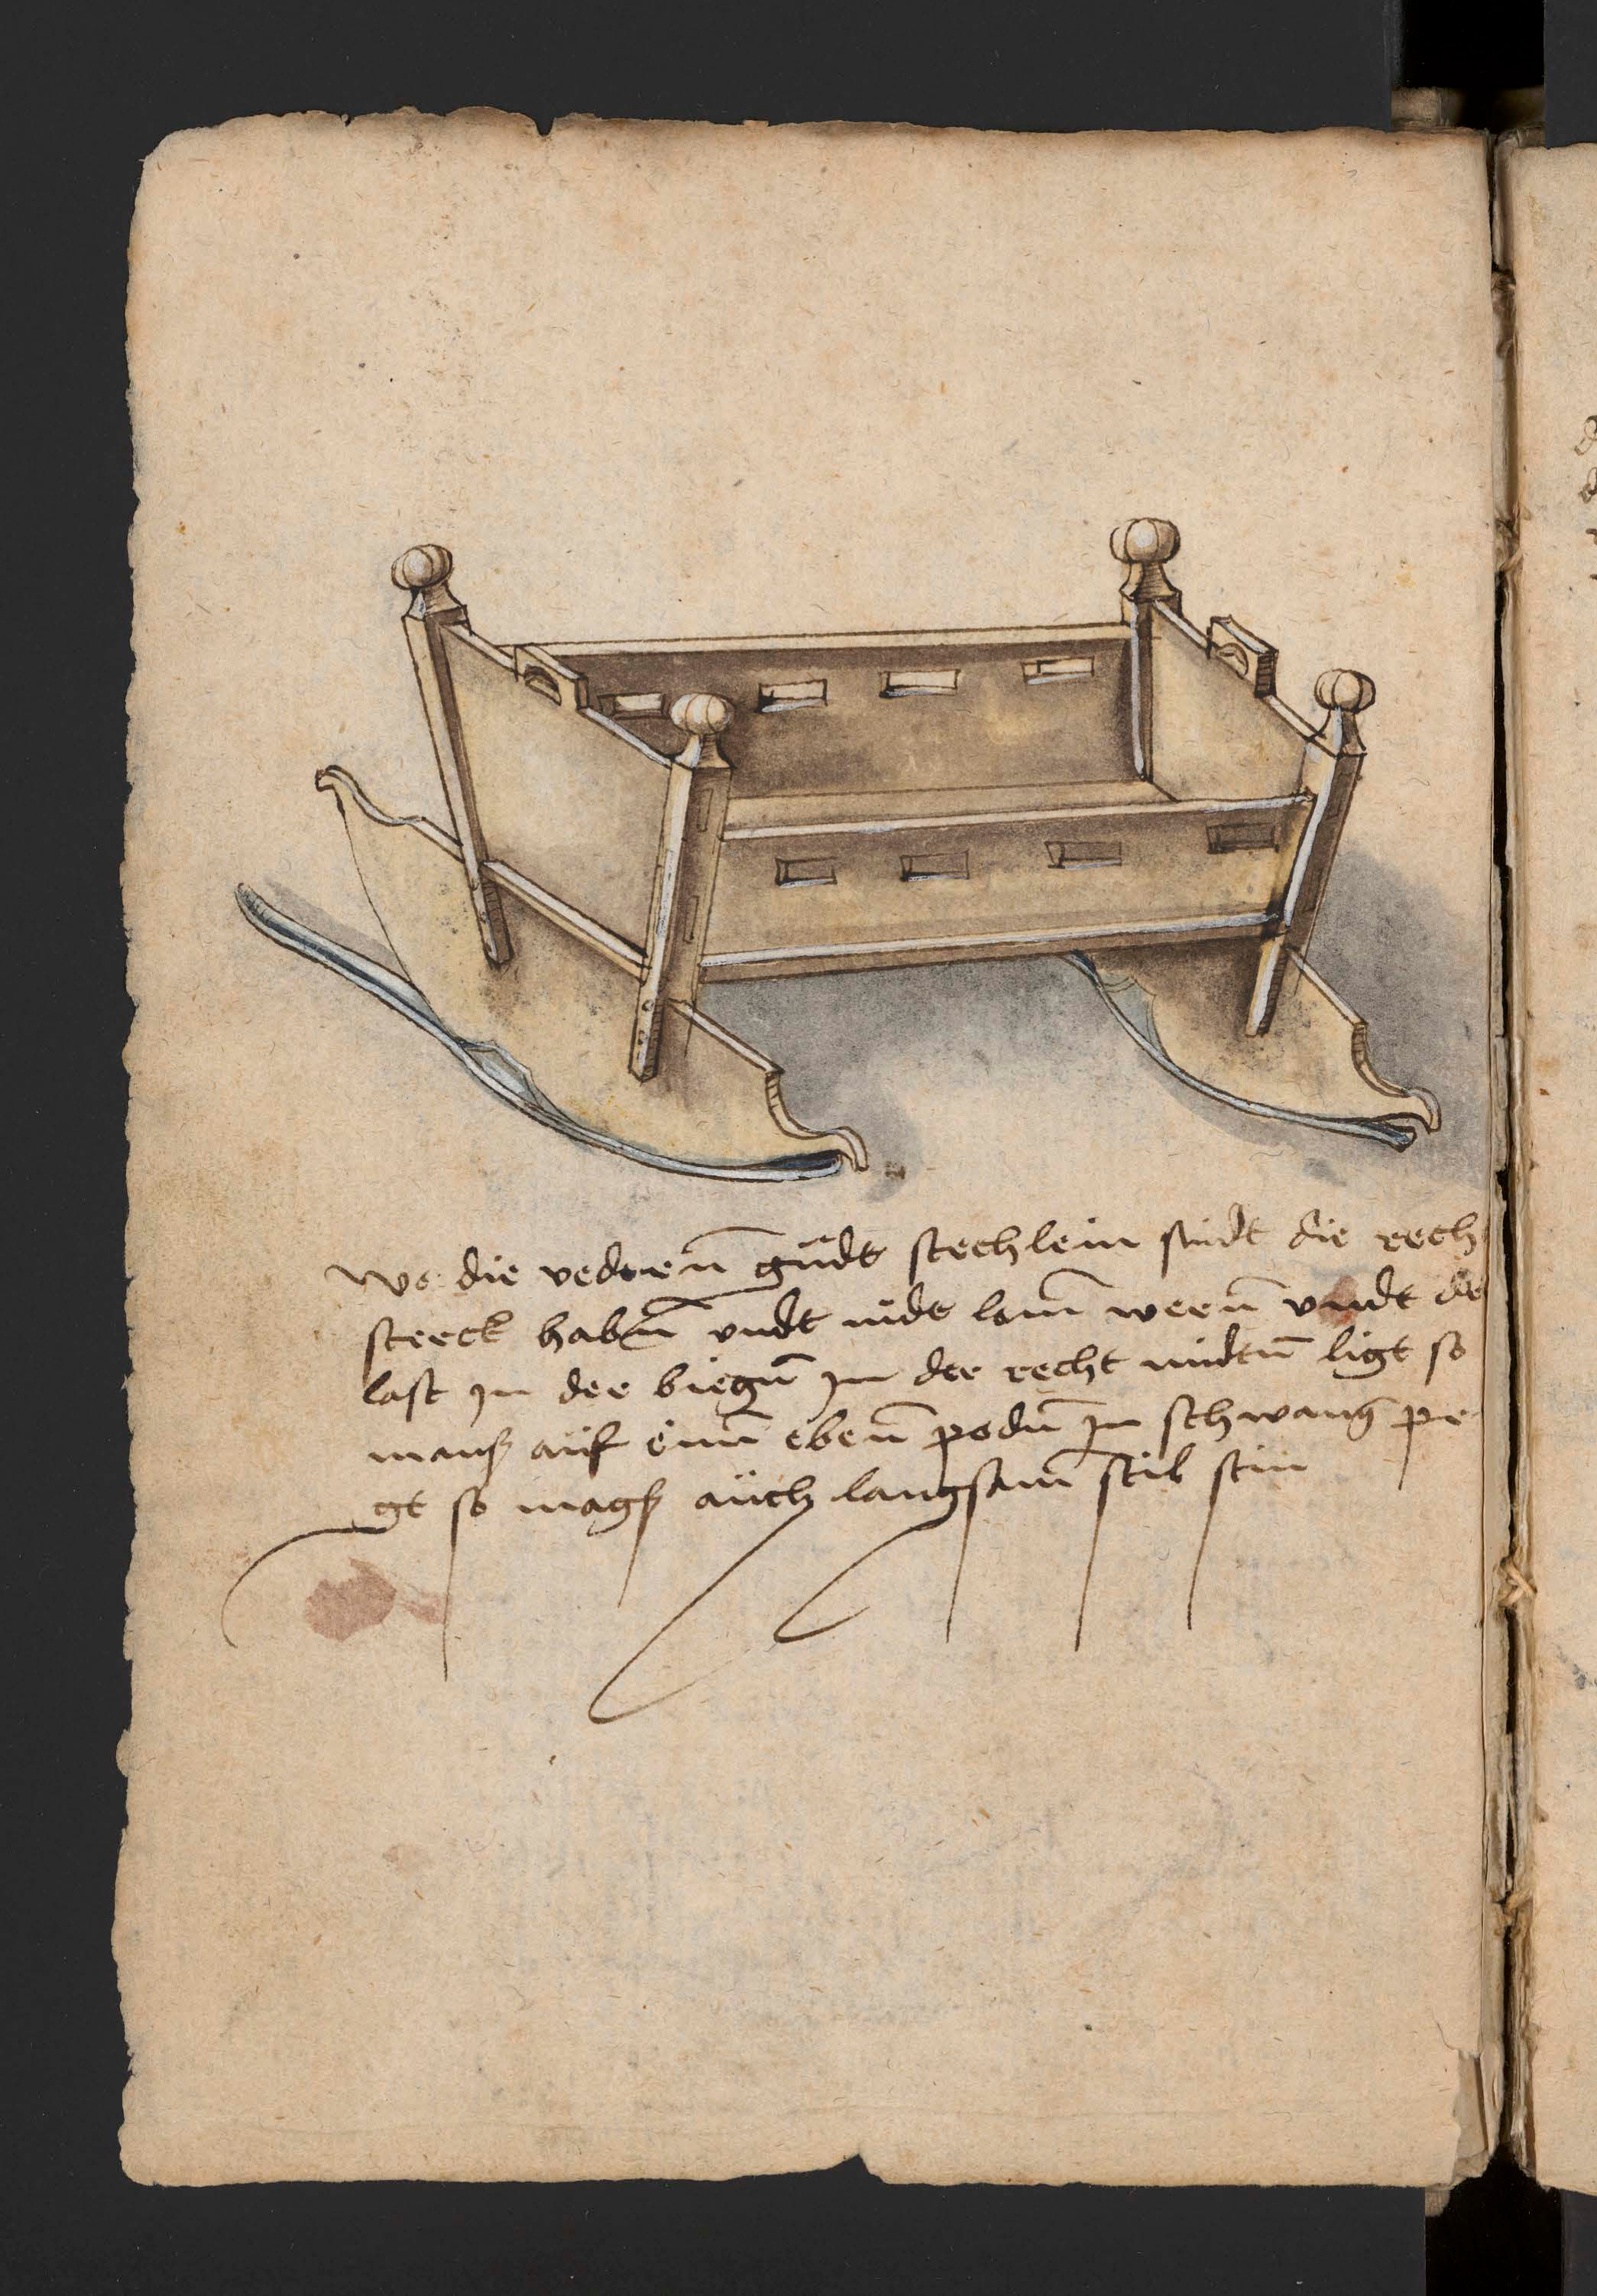 wo die vederen̄ gudt stechlein sindt die rech
sterck haben̄ vndt nidt lam̄ weren̄ vndt de
last jn der biegun̄ jn der recht midtun̄ ligt so
mans auf einn̄ eben̄ podun̄ jn schwang pe
gt so mags auch langsam̄ stil stin